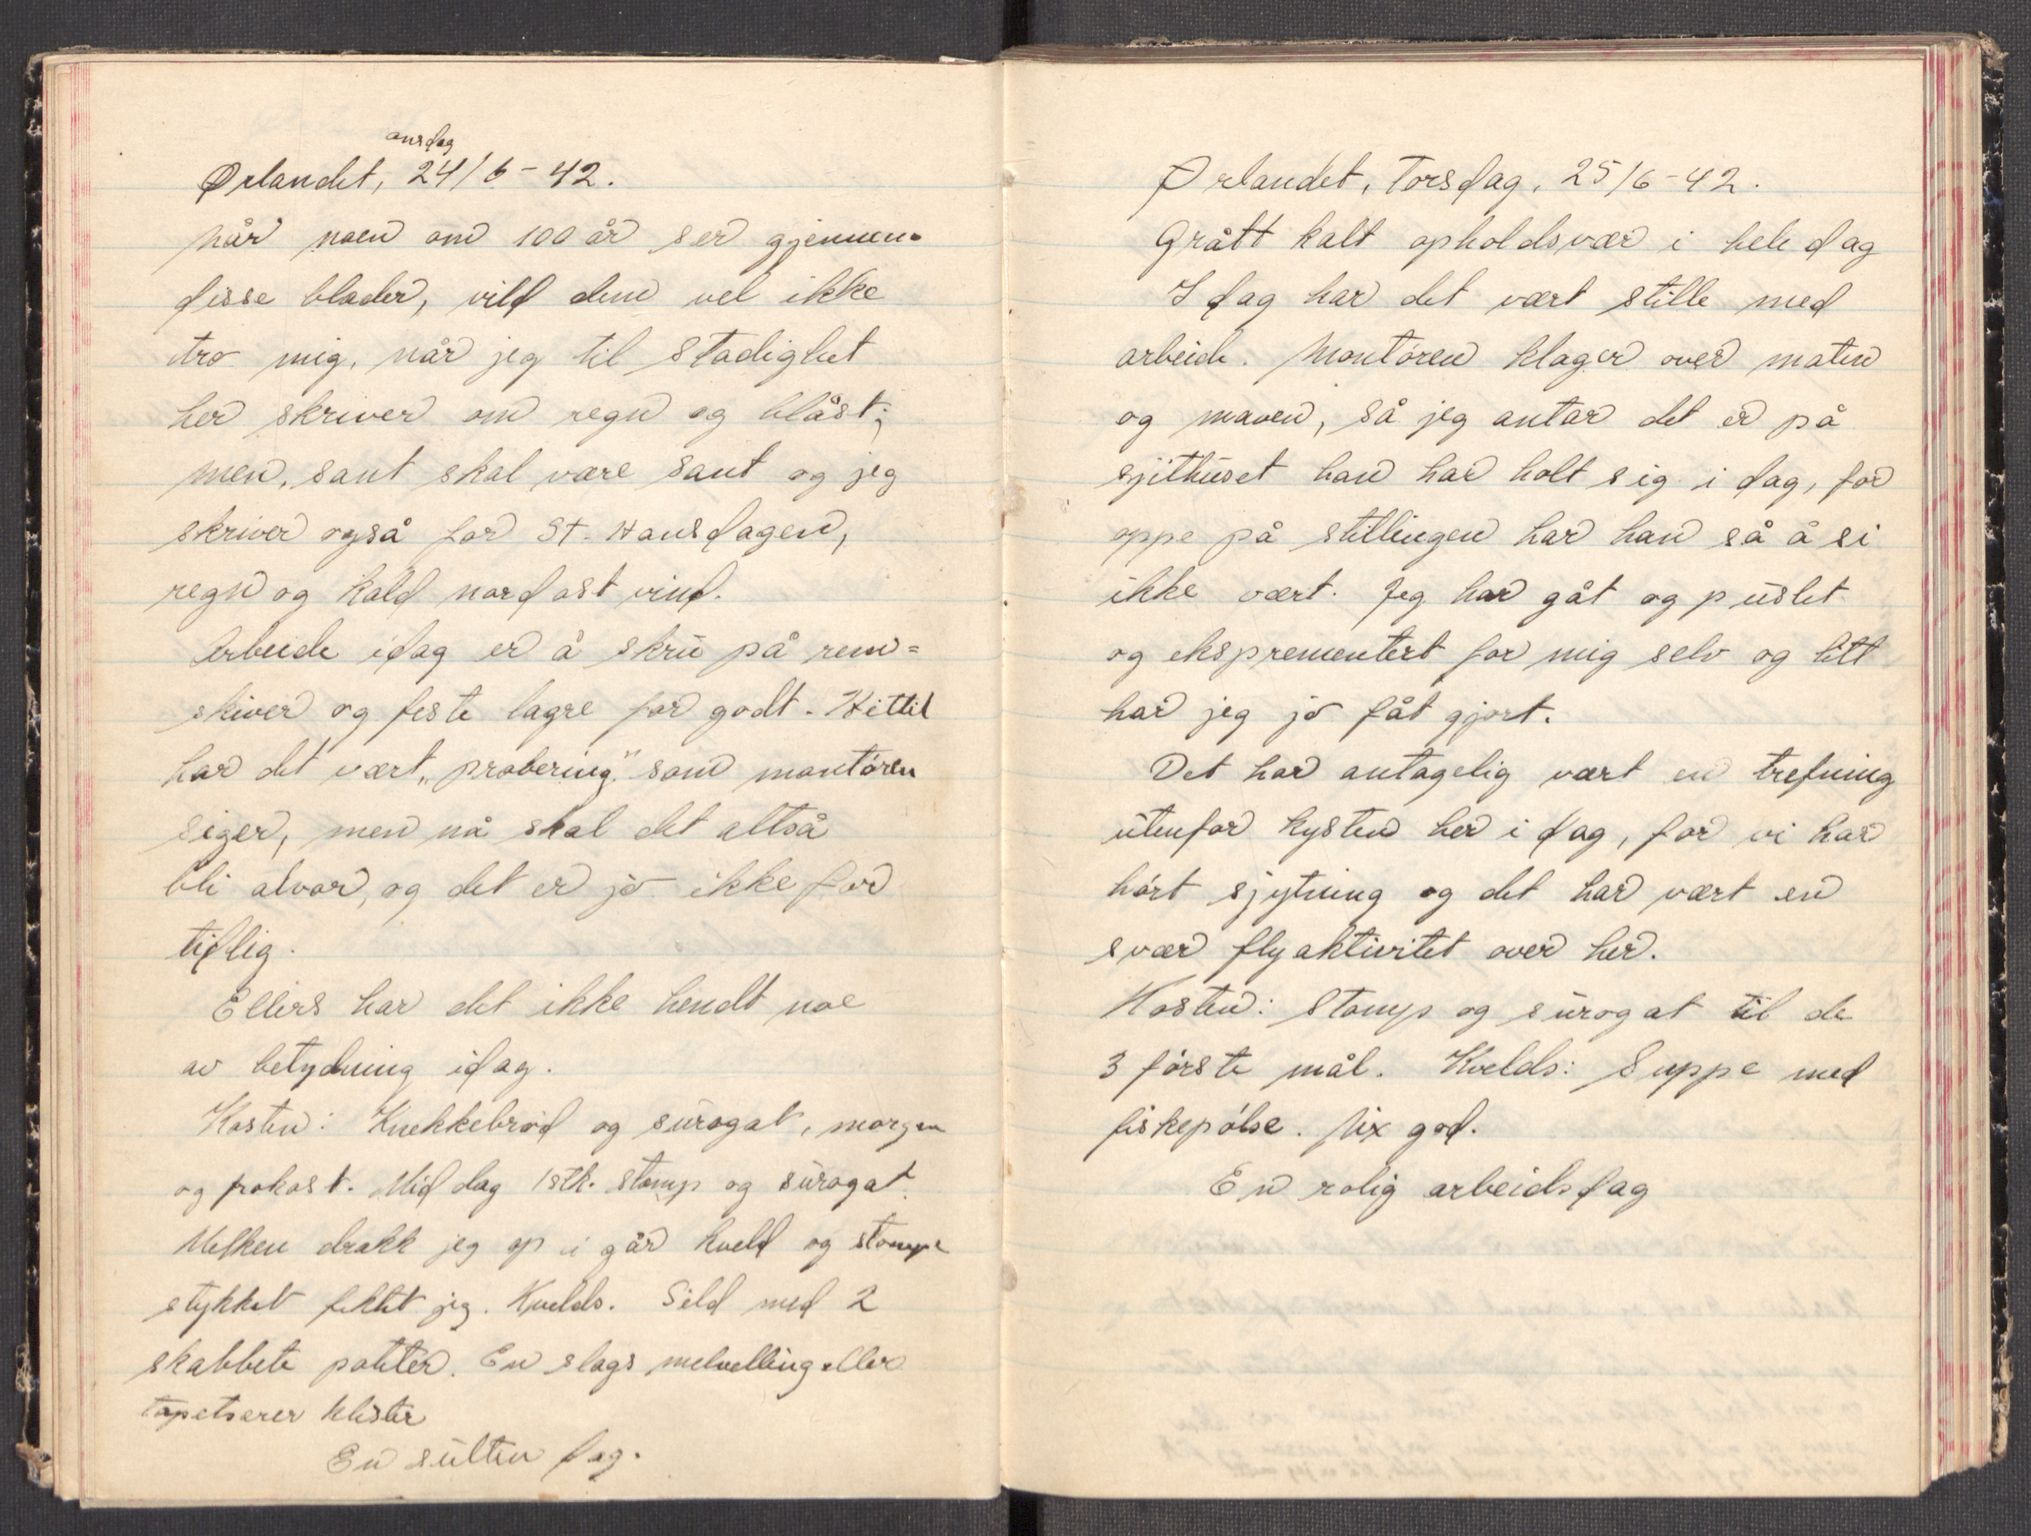 onsdag
Ørlandet, 24/6-42.
når noen om 100 år ser gjennem-
disse blader, vild dem vel ikke
tro mig, når jeg til stadighet
her skriver om regn og blåst;
men, sant skal være sant og jeg
skriver også for St. Hansdagen,
regn og kald nordost vind.
Arbeide idag er å skru på rem=
skiver og feste lagre for godt. Hittil
har det vært „probering" som montøren
siger, men nå skal det altså
bli alvor, og det er jo ikke for
tidlig.
Ellers har det ikke hendt noe
av betydning idag.
Kosten: Knekkebrød og surogat, morgen
og frokost. Middag 1 stk. stomp og surogat.
Melken drakk jeg op i går kveld og stompe
stykket fektet jeg. Kvelds. Sild med 2
skabbete poteter. En slags melvelling eller
tapetserer klister
En sulten dag.
Ørlandet, Torsdag, 25/6-42.
Grått kalt opholdsvær i hele dag
I dag har det vært stille med
arbeide. Montøren klager over maten
og maven, så jeg antar det er på
sjithuset han har holt sig i dag, for
oppe på stillingen har han så å si
ikke vært. Jeg har gåt og puslet
og eksprementert for mig selv og litt
har jeg jo fåt gjort.
Det har antagelig vært en trefning
utenfor kysten her i dag, for vi har
hørt sjytning og det har vært en
svær flyaktivitet over her.
Kosten: Stomp og surogat til de
3 første mål. Kvelds: Suppe med
fiskepølse. Nix god.
En rolig arbeidsdag